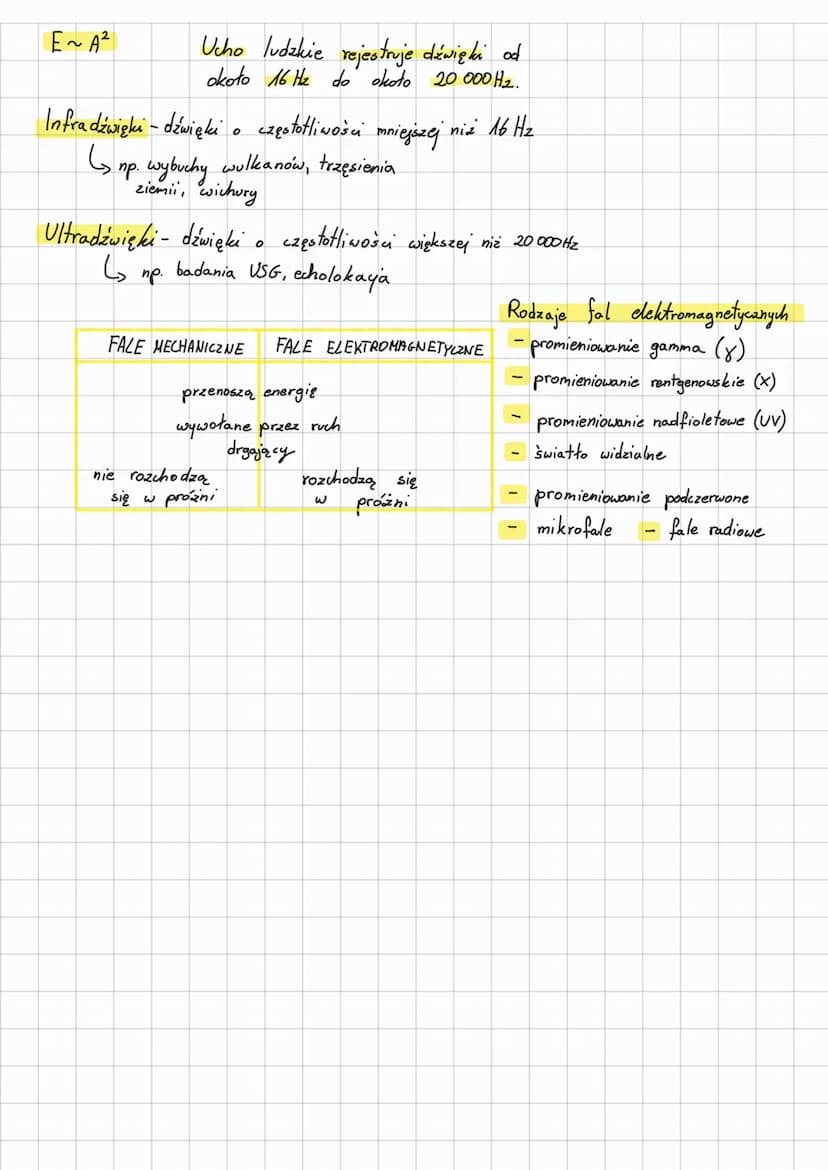 E ~ A²
Ucho ludzkie rejestruje dźwięki od
około 16 Hz do około 20 000 Hz.
Infradźwięki - dźwięki o częstotliwości mniejszej niż 16 Hz
↳ np. wybuchy wulkanów, trzęsienia
ziemii, wichury
Ultradźwięki - dźwięki o częstotliwości większej niż 20 000 Hz
↳ np. badania USG, echolokacja
FALE MECHANICZNE
FALE ELEKTROMAGNETYCZNE
przenoszą energię
wywołane przez ruch
drgający
nie rozchodzą
się w próżni
rozchodzą się
w próżni
Rodzaje fal elektromagnetycznych
- promieniowanie gamma (γ)
- promieniowanie rentgenowskie (X)
- promieniowanie nadfioletowe (UV)
- światło widzialne
- promieniowanie podczerwone
- mikrofale - fale radiowe